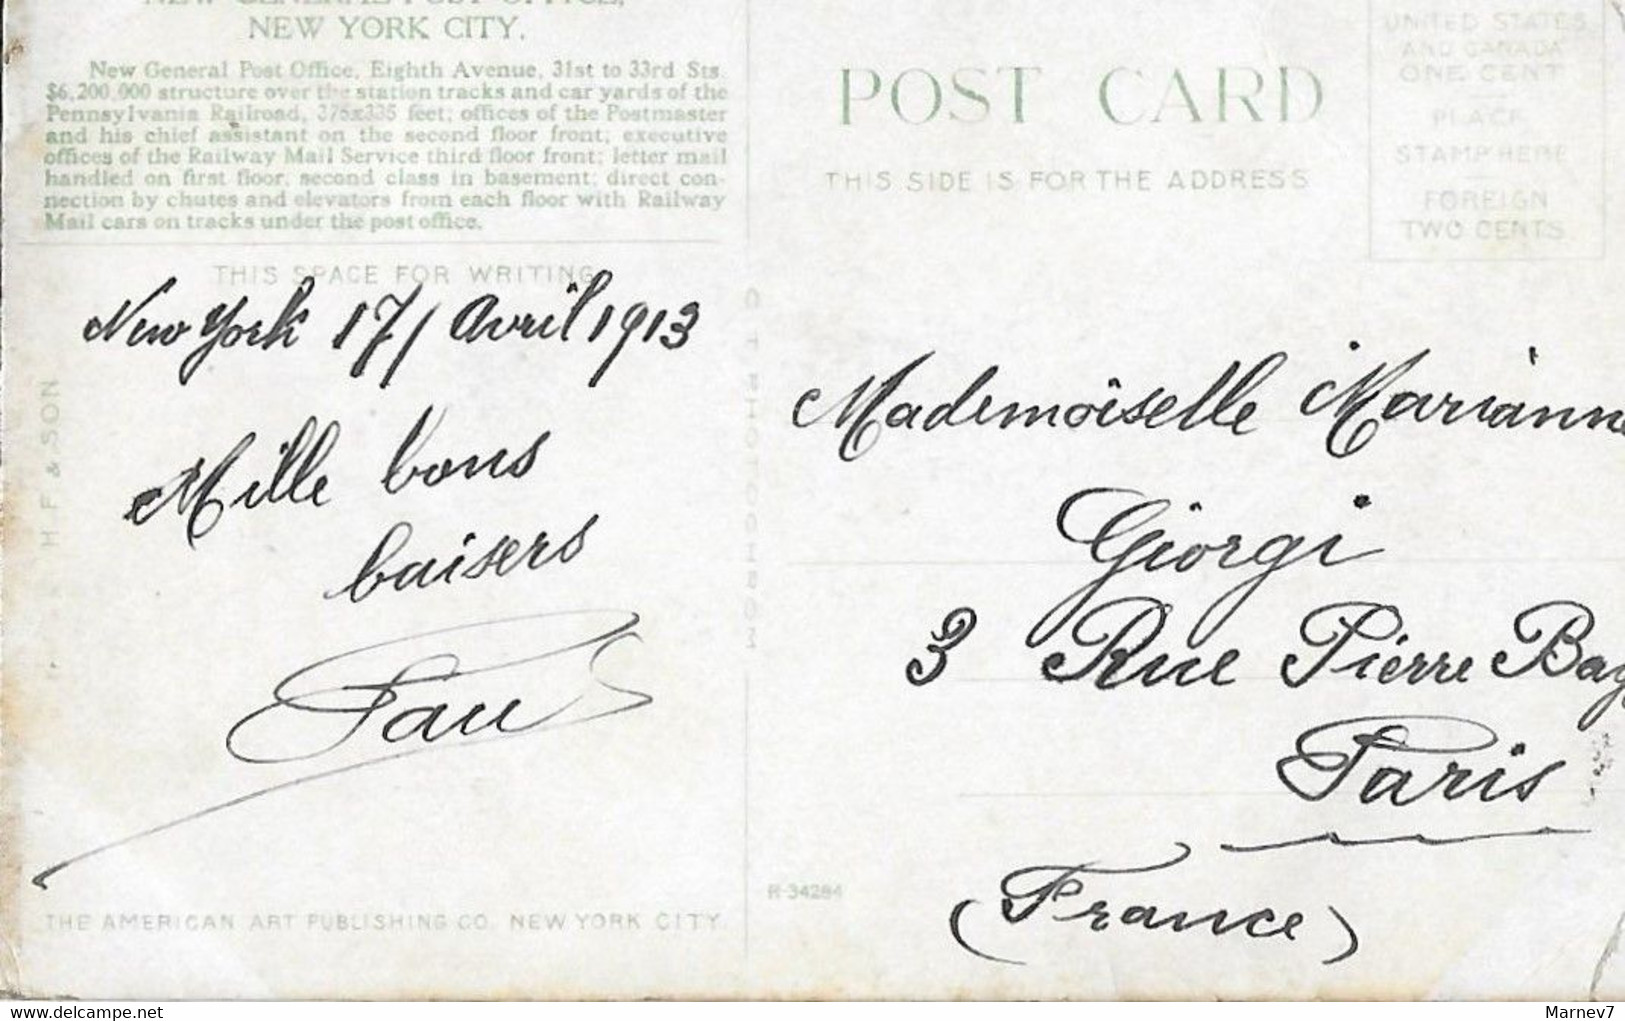 NEW GENERAL POST OFFICE,
NEW YORK CITY.
New General Post Office, Eighth Avenue, 31st to 33rd Sts.
$6,200,000 structure over the station tracks and car yards of the
Pennsylvania Railroad, 375x335 feet; offices of the Postmaster
and his chief assistant on the second floor front; executive
offices of the Railway Mail Service third floor front; letter mail
handled on first floor, second class in basement; direct con-
nection by chutes and elevators from each floor with Railway
Mail cars on tracks under the post office.
THIS SPACE FOR WRITING
New York 17/ Avril 1913
Mille bons
baisers
H. F. & SON
THE AMERICAN ART PUBLISHING CO. NEW YORK CITY.
R-34284
POST CARD
THIS SIDE IS FOR THE ADDRESS
UNITED STATES
AND CANADA
ONE CENT
PLACE
STAMP HERE
FOREIGN
TWO CENTS
Mademoiselle Marianne
Giorgi
3 Rue Pierre Bay
Paris
(France)
Marnev7